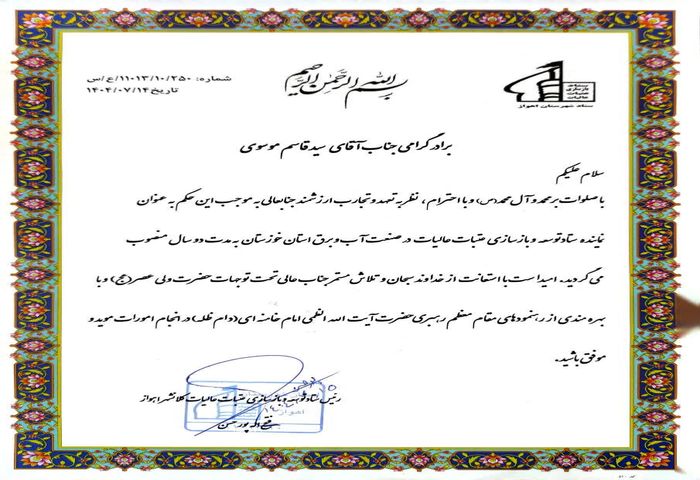 بسم الله الرحمن الرحیم
شماره: ۱۱۰۱۳/۱۰/۲۵۰/ع/س
تاریخ ۱۴۰۴/۰۷/۱۴
ستاد
بازسازی
عتبات
عالیات
ستاد شهرستان اهواز
برادر گرامی جناب آقای سید قاسم موسوی
سلام علیکم
با صلوات بر محمد و آل محمد (ص) و با احترام، نظر به تعهد و تجارب ارزشمند جنابعالی به موجب این حکم به عنوان
نماینده ستاد توسعه و بازسازی عتبات عالیات در صنعت آب و برق استان خوزستان به مدت دو سال منصوب
می گردید. امید است با استعانت از خداوند سبحان و تلاش مستمر جناب عالی تحت توجهات حضرت ولی عصر (عج) و با
بهره مندی از رهنمودهای مقام معظم رهبری حضرت آیت الله العظمی امام خامنه ای (دام ظله) در انجام امورات موید و
موفق باشید.
رئیس ستاد توسعه و بازسازی عتبات عالیات کلانشهر اهواز
فتح اله پور حسن